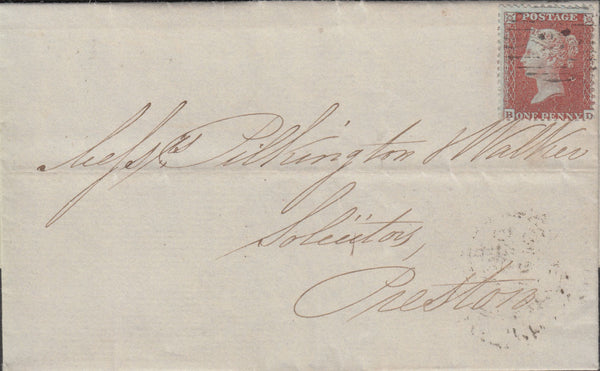 POSTAGE
B ONE PENNY D
Messrs Pilkington & Walker
Solicitors,
Preston